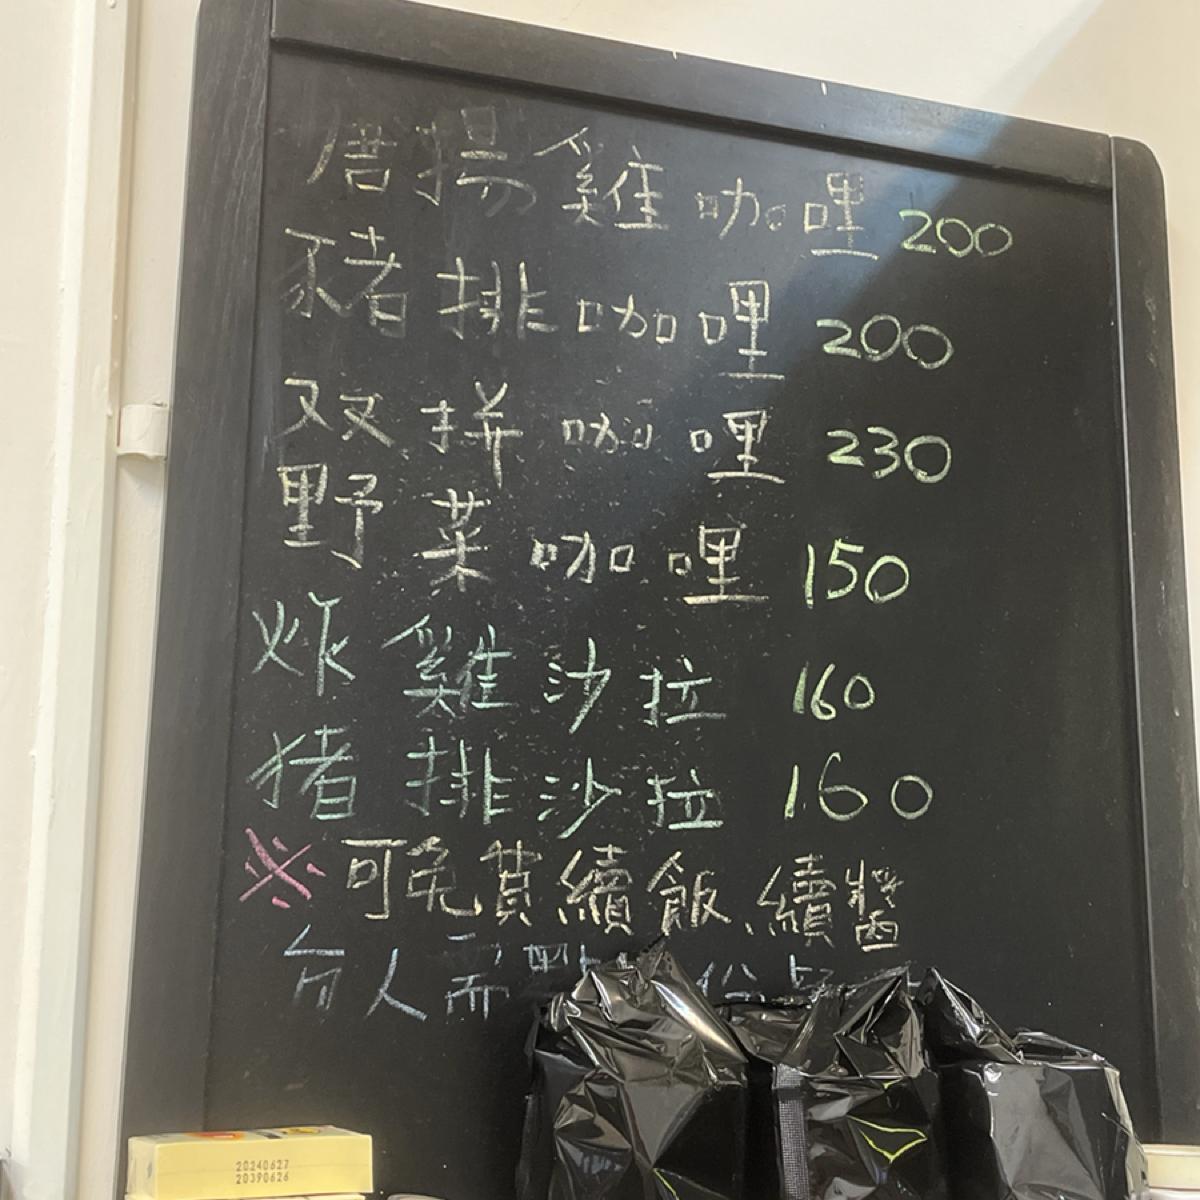 唐揚雞咖哩 200
豬排咖哩 200
双拼咖哩 230
野菜咖哩 150
炸雞沙拉 160
猪排沙拉 160
※可免費續飯、續醬
人需點 份
20240627
20390626